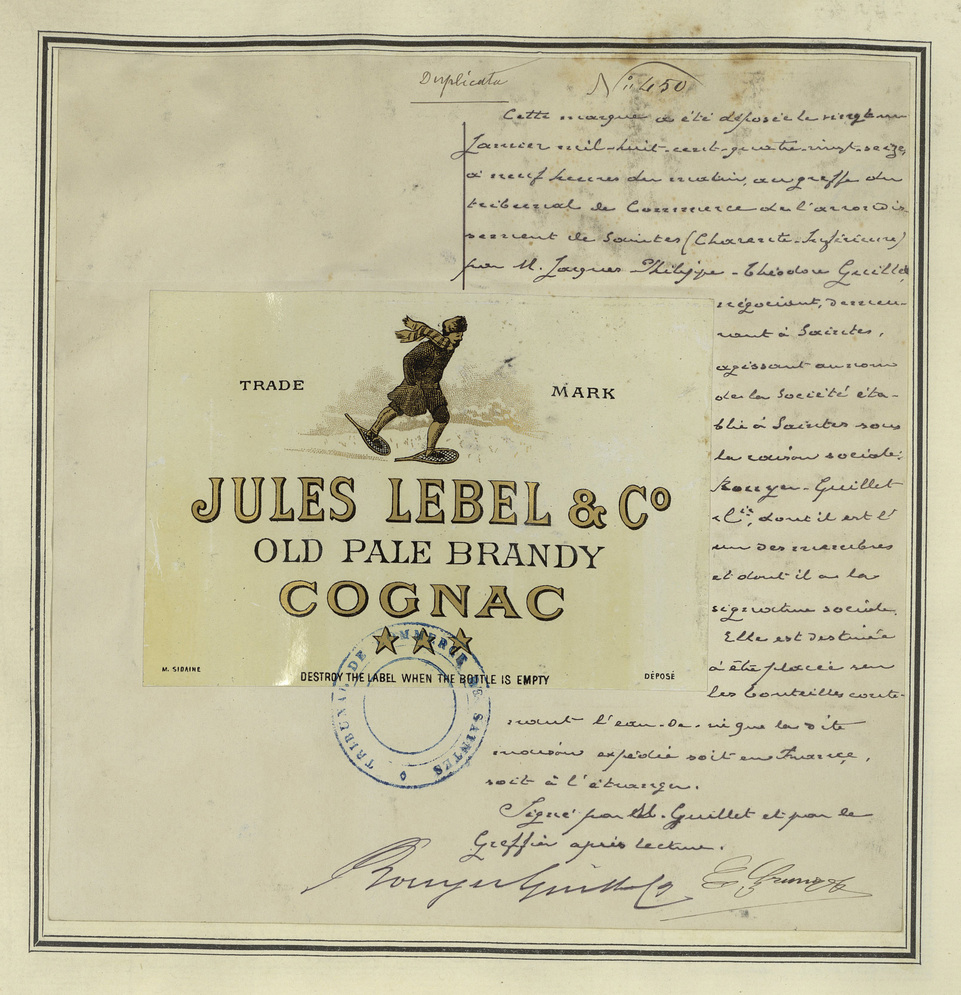 Duplicata
N° 450
Cette marque a été déposée le vingt un
Janvier mil-huit-cent-quatre-vingt-seize,
à neuf heures du matin, au greffe du
tribunal de Commerce de l'arrondis-
sement de Saintes (Charente-Inférieure)
par M. Jacques Philippe-Théodore Guillet,
négociant, demeu-
rant à Saintes,
agissant au nom
de la Société éta-
blie à Saintes sous
la raison sociale:
Rouyer-Guillet
& Cie, dont il est l'
un des membres
et dont il a la
signature sociale.
Elle est destinée
à être placée sur
les bouteilles conte-
nant l'eau-de-vie que la dite
maison expédie soit en France,
soit à l'étranger.
Signé par M. Guillet et par le
Greffier après lecture.
Rouyer Guillet & Co
TRADE MARK
JULES LEBEL & Co
OLD PALE BRANDY
COGNAC
M. SIDAINE
DESTROY THE LABEL WHEN THE BOTTLE IS EMPTY
DÉPOSÉ
TRIBUNAL DE COMMERCE DE SAINTES